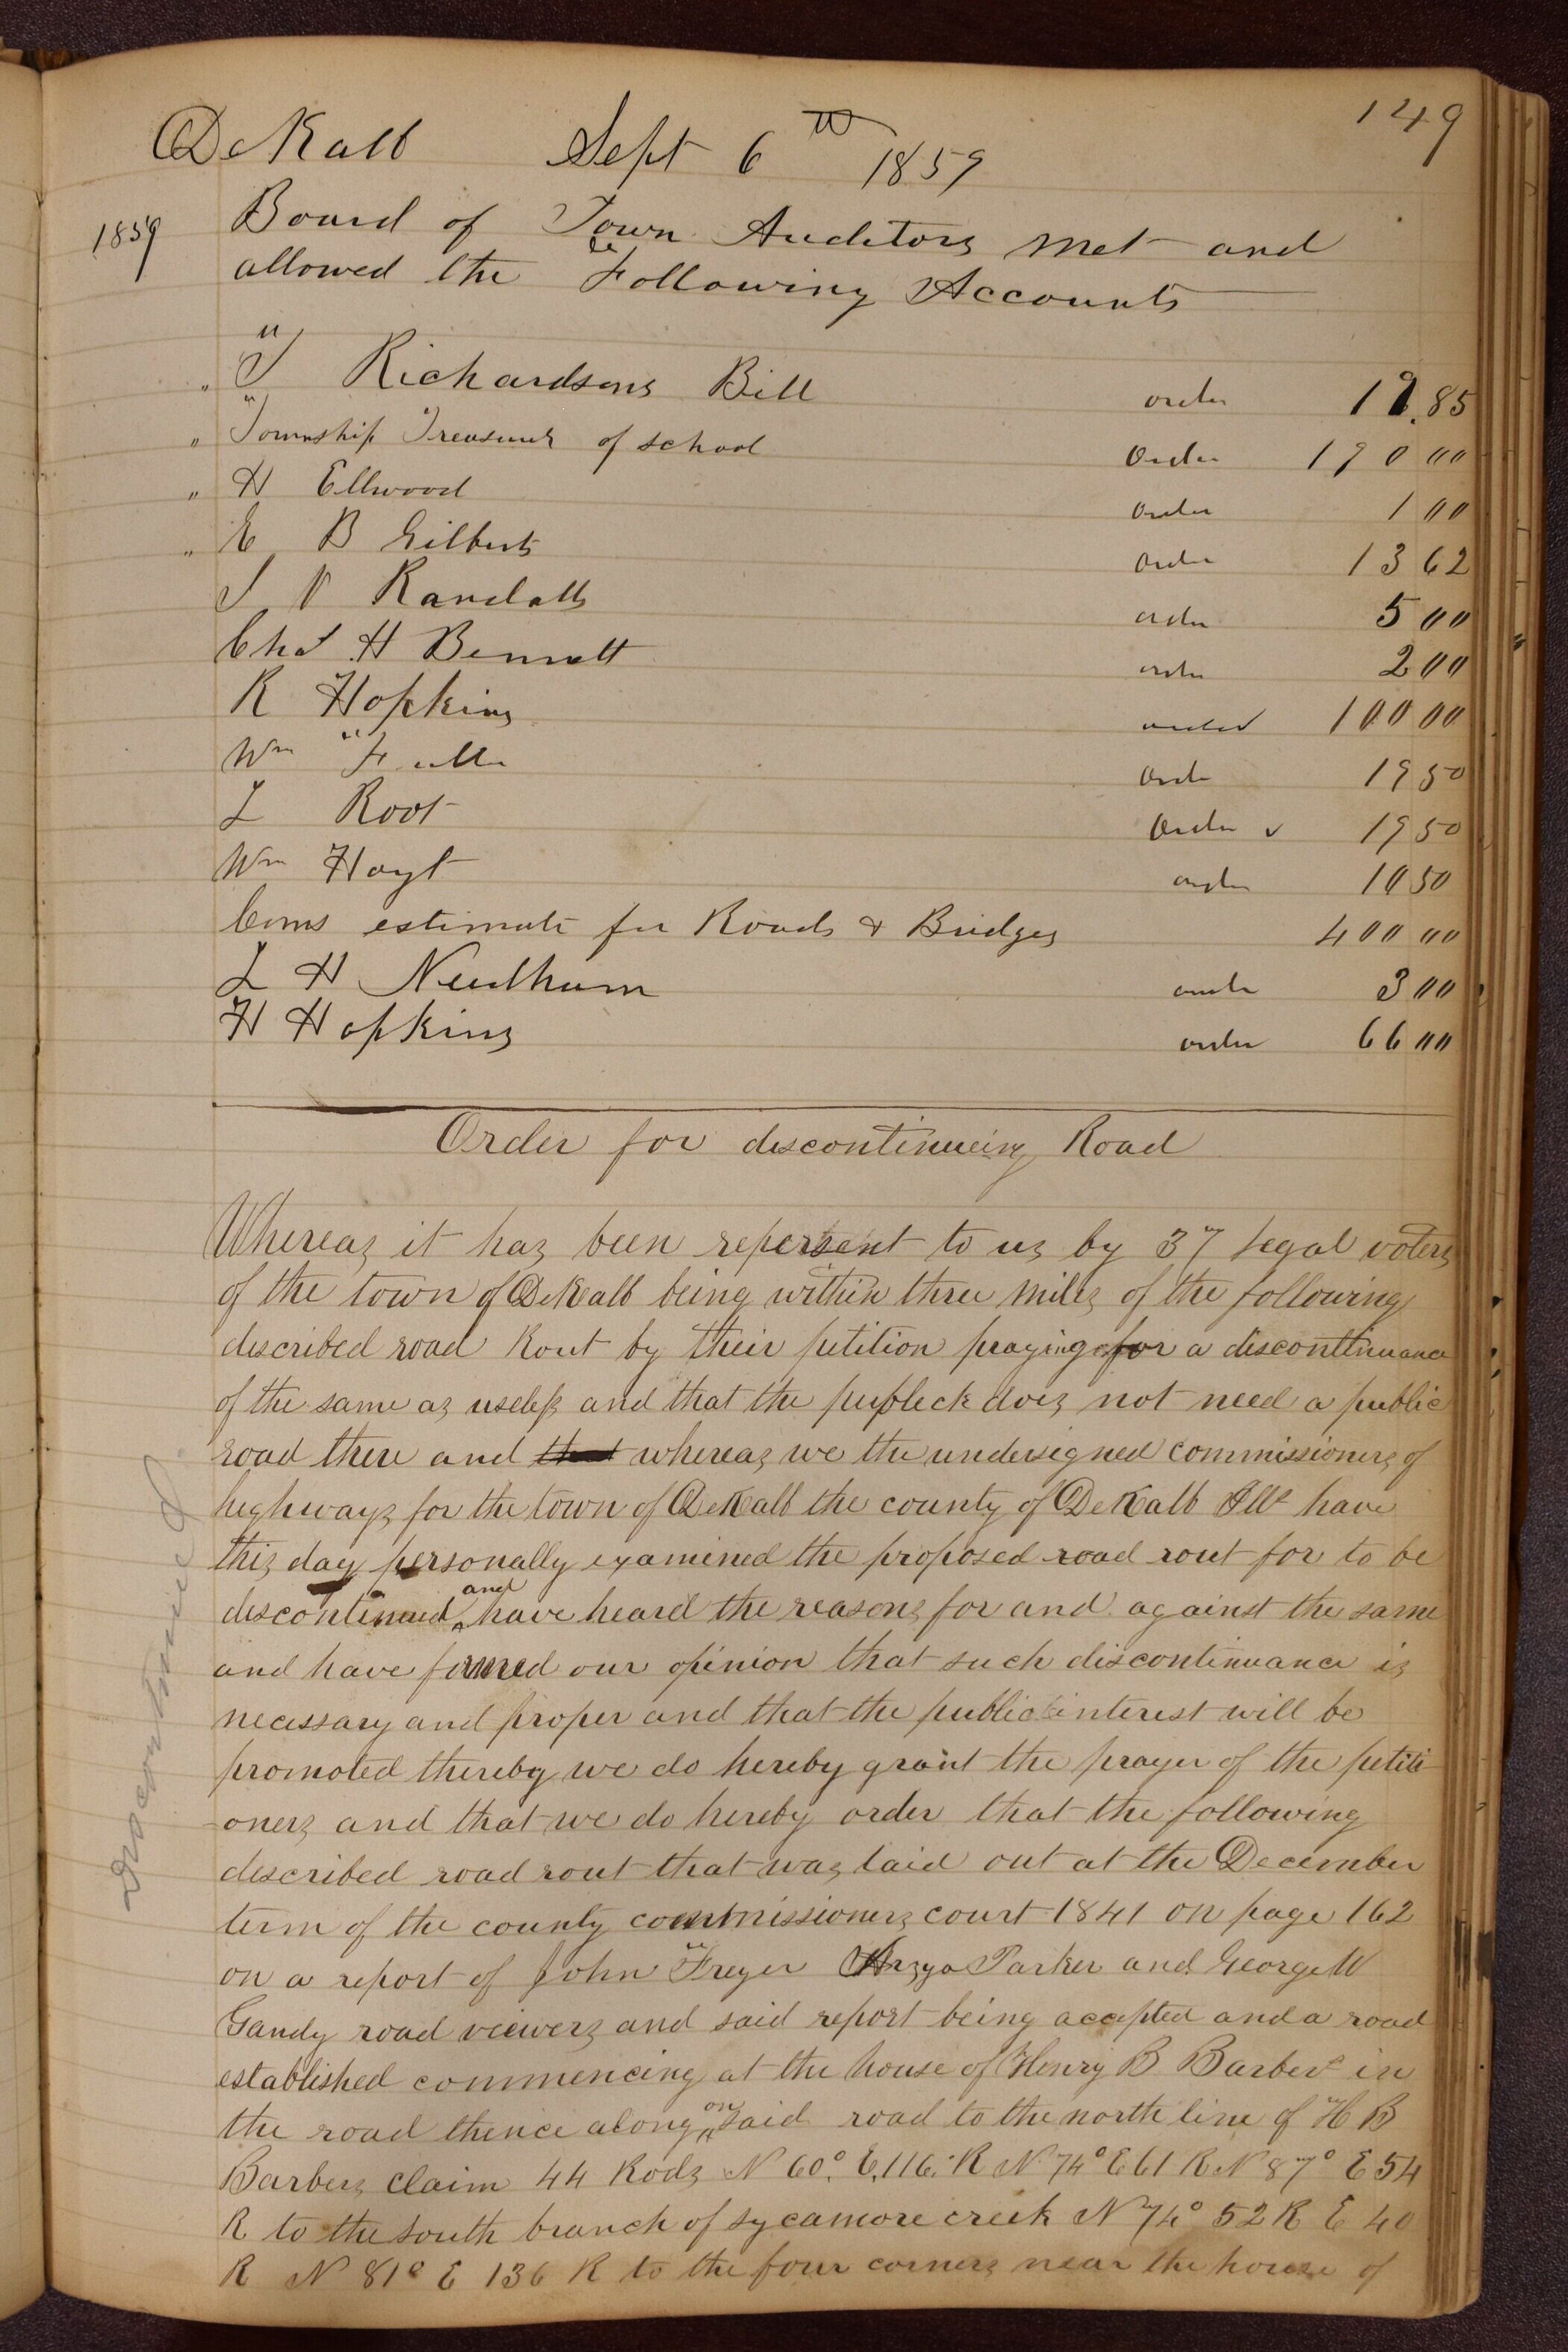 149
DeKalb Sept 6th 1859
1859 Board of Town Auditors met and
allowed the Following Accounts
" T Richardsons Bill order .85
" Township Treasurer of school order 190 00
" H Ellwood order 1 00
" E B Gilberts order 13 62
S V Randalls order 5 00
Chas H Bennett order 2 00
R Hopkins order 100 00
Wm Fuller order 19 50
L Root order v 19 50
Wm Hoyt order 10 50
Coms estimate for Roads & Bridges 400 00
L H Needham order 3 00
H Hopkins order 66 00
Order for discontinueing Road
Whereas it has been repersent to us by 37 legal voters
of the town of DeKalb being within three miles of the following
described road Rout by their petition praying for a discontinuance
of the same as useless and that the publeck does not need a public
road there and that whereas we the undersigned commissioners of
highways for the town of DeKalb the county of DeKalb Ills have
this day personally examined the proposed road rout for to be
discontinued and have heard the reasons for and against the same
and have formed our opinion that such discontinuance is
necessary and proper and that the public interest will be
promoted thereby we do hereby grant the prayer of the petiti
-oners and that we do hereby order that the following
described road rout that was laid out at the December
term of the county commissioners court 1841 on page 162
on a report of John Freyer Arzya Parker and George W
Gandy road viewers and said report being accepted and a road
established commencing at the house of Henry B Barbers in
the road thence along on said road to the north line of H B
Barbers claim 44 Rods N 60° E. 116. R N 74° E 61 R N 87° E 54
R to the south branch of sycamore creek N 74° 52 R E 40
R N 81° E 136 R to the four corners near the house of
Discontinued